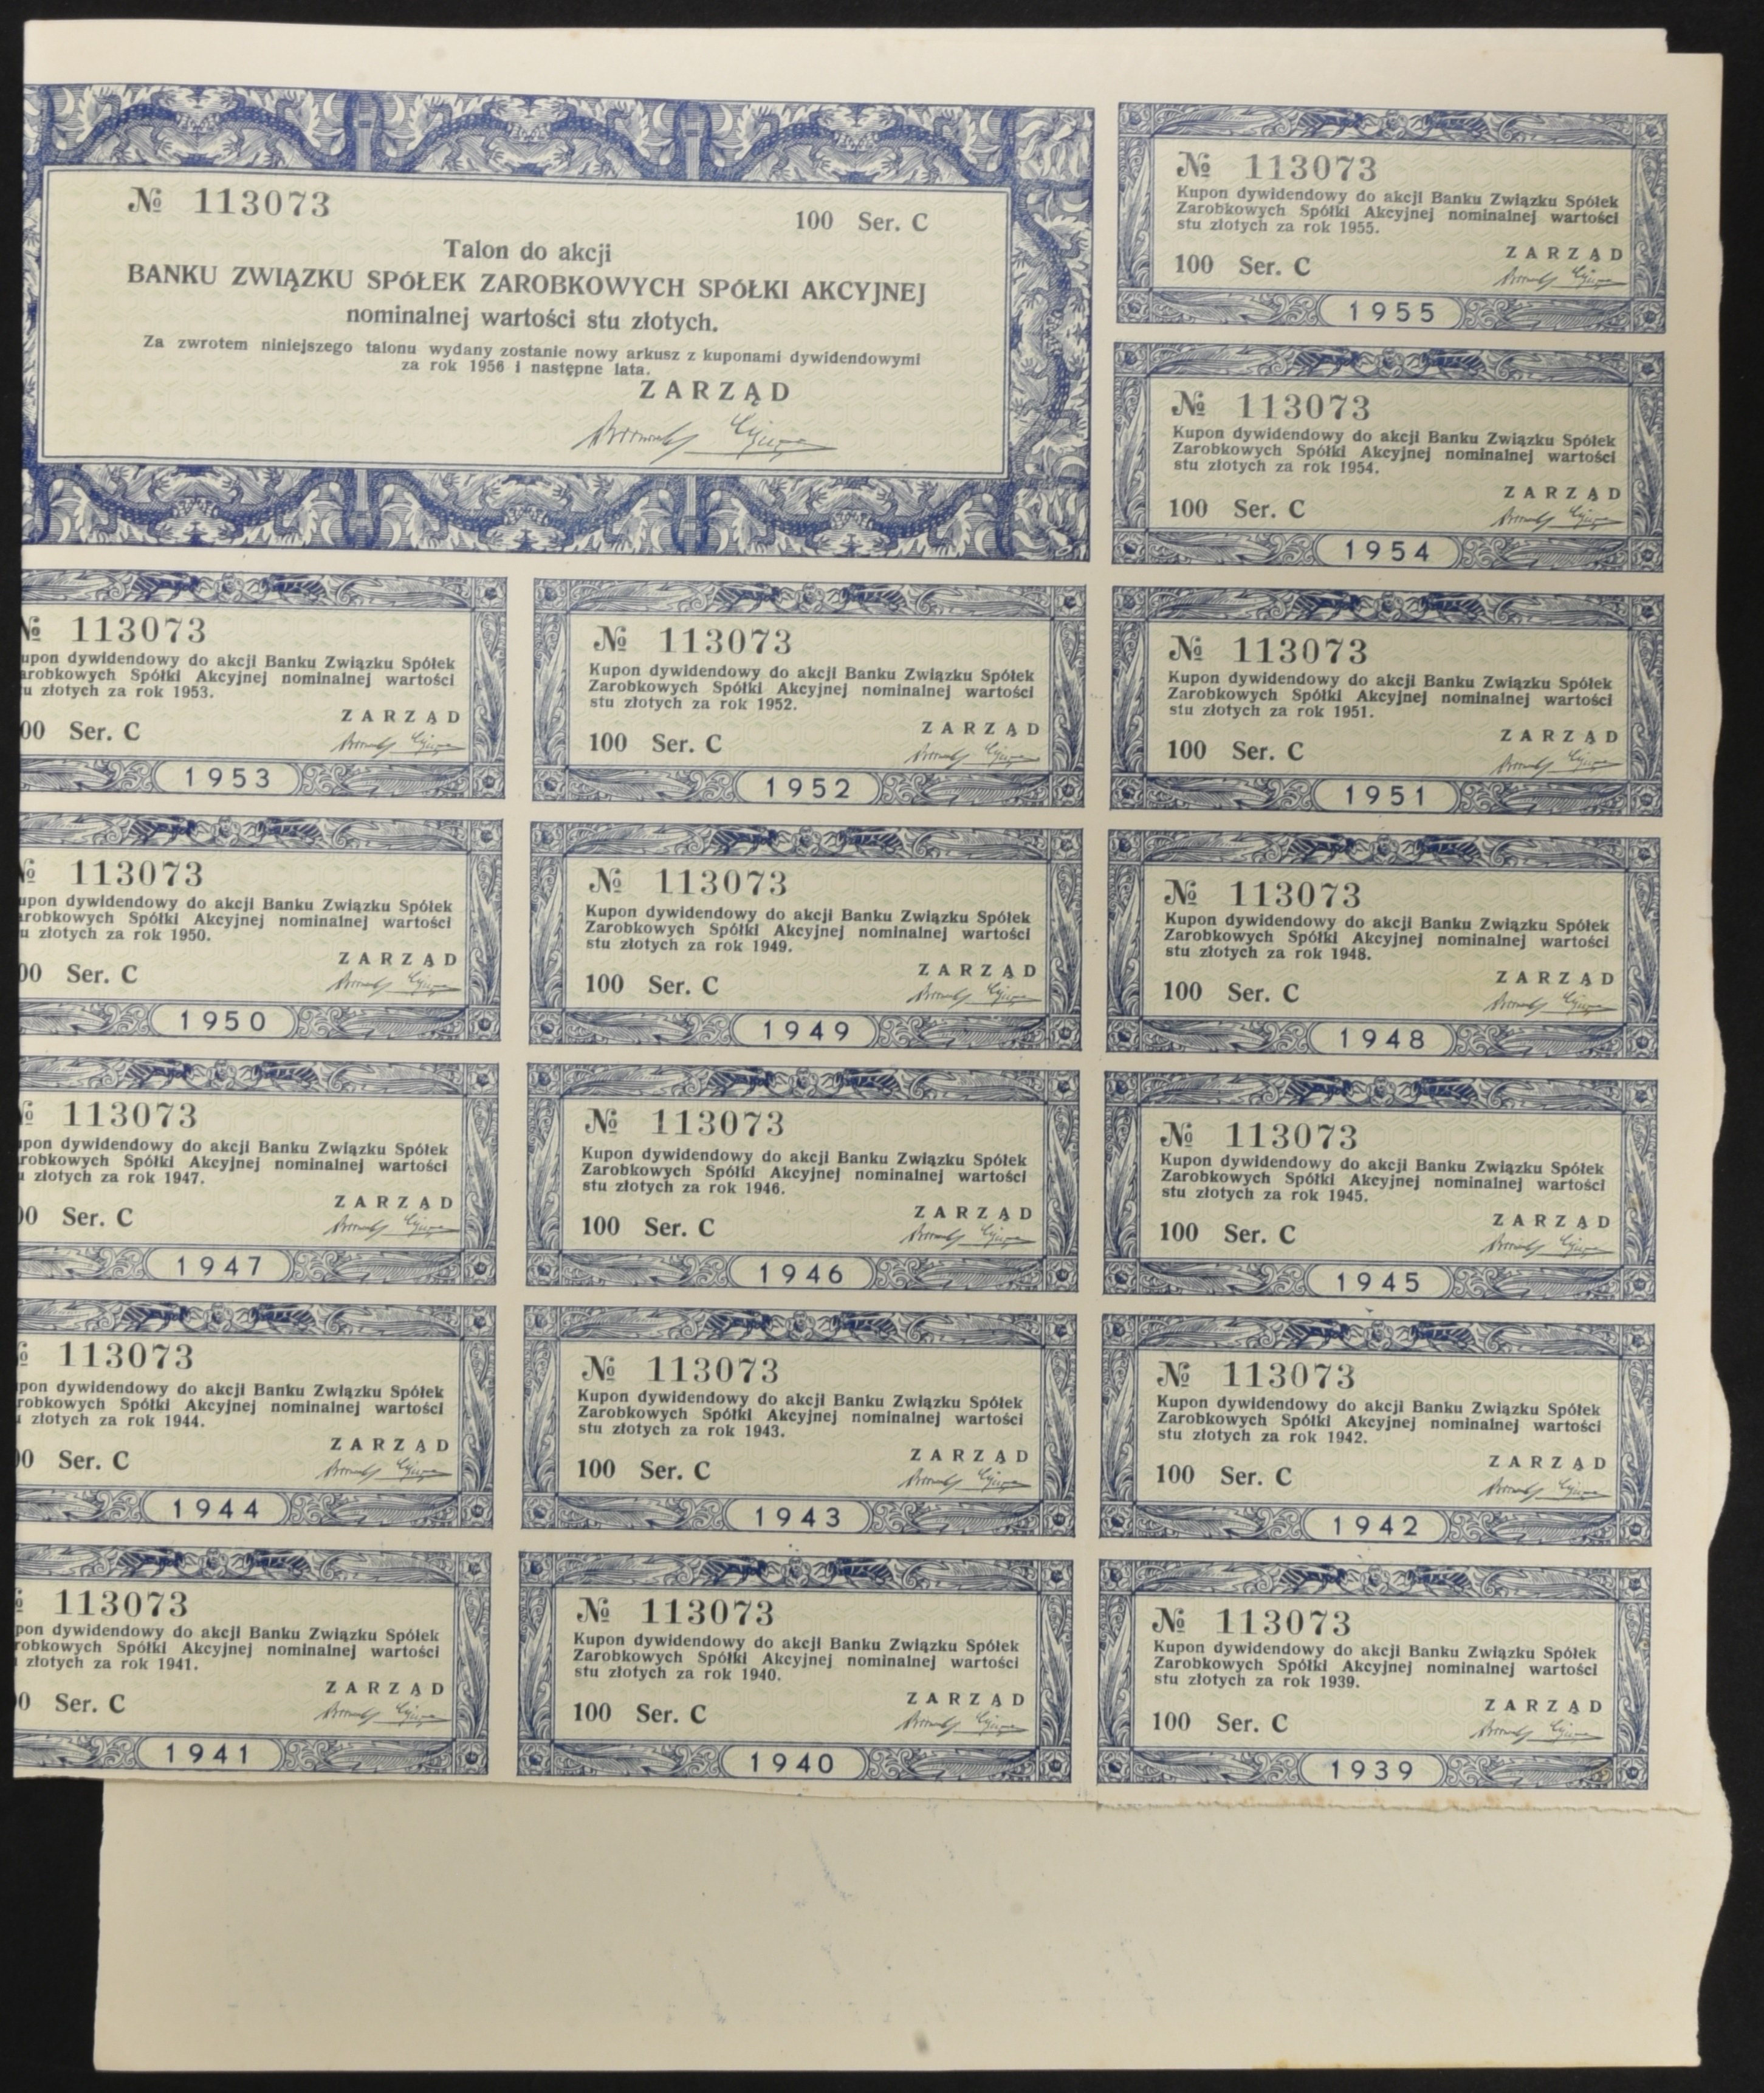 № 113073
100 Ser. C
Talon do akcji
BANKU ZWIĄZKU SPÓŁEK ZAROBKOWYCH SPÓŁKI AKCYJNEJ
nominalnej wartości stu złotych.
Za zwrotem niniejszego talonu wydany zostanie nowy arkusz z kuponami dywidendowymi
za rok 1956 i następne lata.
ZARZĄD
№ 113073
Kupon dywidendowy do akcji Banku Związku Spółek
Zarobkowych Spółki Akcyjnej nominalnej wartości
stu złotych za rok 1955.
ZARZĄD
100 Ser. C
1955
№ 113073
Kupon dywidendowy do akcji Banku Związku Spółek
Zarobkowych Spółki Akcyjnej nominalnej wartości
stu złotych za rok 1954.
ZARZĄD
100 Ser. C
1954
№ 113073
upon dywidendowy do akcji Banku Związku Spółek
arobkowych Spółki Akcyjnej nominalnej wartości
u złotych za rok 1953.
ZARZĄD
00 Ser. C
1953
№ 113073
Kupon dywidendowy do akcji Banku Związku Spółek
Zarobkowych Spółki Akcyjnej nominalnej wartości
stu złotych za rok 1952.
ZARZĄD
100 Ser. C
1952
№ 113073
Kupon dywidendowy do akcji Banku Związku Spółek
Zarobkowych Spółki Akcyjnej nominalnej wartości
stu złotych za rok 1951.
ZARZĄD
100 Ser. C
1951
№ 113073
upon dywidendowy do akcji Banku Związku Spółek
arobkowych Spółki Akcyjnej nominalnej wartości
u złotych za rok 1950.
ZARZĄD
00 Ser. C
1950
№ 113073
Kupon dywidendowy do akcji Banku Związku Spółek
Zarobkowych Spółki Akcyjnej nominalnej wartości
stu złotych za rok 1949.
ZARZĄD
100 Ser. C
1949
№ 113073
Kupon dywidendowy do akcji Banku Związku Spółek
Zarobkowych Spółki Akcyjnej nominalnej wartości
stu złotych za rok 1948.
ZARZĄD
100 Ser. C
1948
№ 113073
pon dywidendowy do akcji Banku Związku Spółek
robkowych Spółki Akcyjnej nominalnej wartości
złotych za rok 1947.
ZARZĄD
00 Ser. C
1947
№ 113073
Kupon dywidendowy do akcji Banku Związku Spółek
Zarobkowych Spółki Akcyjnej nominalnej wartości
stu złotych za rok 1946.
ZARZĄD
100 Ser. C
1946
№ 113073
Kupon dywidendowy do akcji Banku Związku Spółek
Zarobkowych Spółki Akcyjnej nominalnej wartości
stu złotych za rok 1945.
ZARZĄD
100 Ser. C
1945
113073
pon dywidendowy do akcji Banku Związku Spółek
robkowych Spółki Akcyjnej nominalnej wartości
złotych za rok 1944.
ZARZĄD
00 Ser. C
1944
№ 113073
Kupon dywidendowy do akcji Banku Związku Spółek
Zarobkowych Spółki Akcyjnej nominalnej wartości
stu złotych za rok 1943.
ZARZĄD
100 Ser. C
1943
№ 113073
Kupon dywidendowy do akcji Banku Związku Spółek
Zarobkowych Spółki Akcyjnej nominalnej wartości
stu złotych za rok 1942.
ZARZĄD
100 Ser. C
1942
113073
pon dywidendowy do akcji Banku Związku Spółek
robkowych Spółki Akcyjnej nominalnej wartości
złotych za rok 1941.
ZARZĄD
0 Ser. C
1941
№ 113073
Kupon dywidendowy do akcji Banku Związku Spółek
Zarobkowych Spółki Akcyjnej nominalnej wartości
stu złotych za rok 1940.
ZARZĄD
100 Ser. C
1940
№ 113073
Kupon dywidendowy do akcji Banku Związku Spółek
Zarobkowych Spółki Akcyjnej nominalnej wartości
stu złotych za rok 1939.
ZARZĄD
100 Ser. C
1939